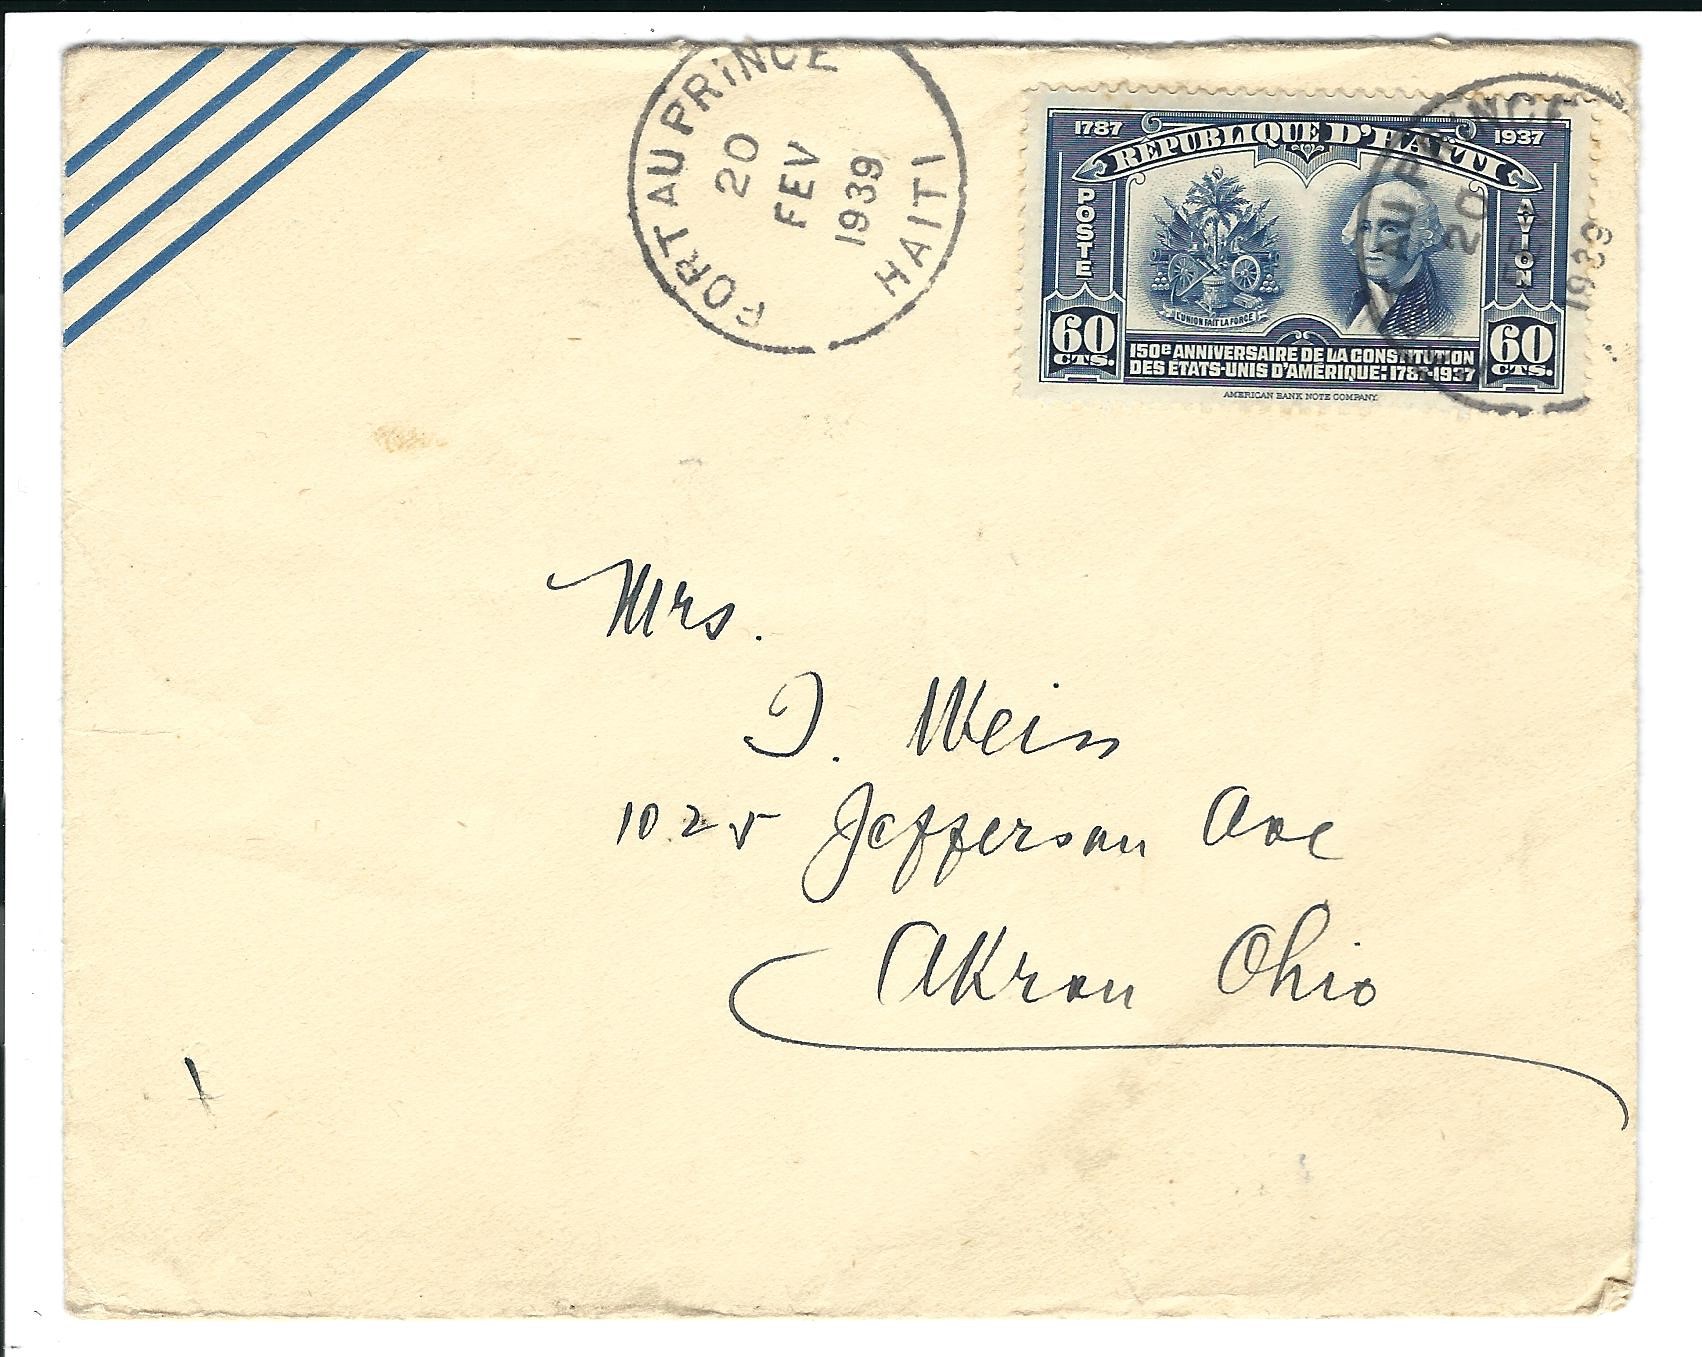 PORT AU PRINCE
20
FEV
1939
HAITI
1787 1937
REPUBLIQUE D'HAÏTI
POSTE AVION
L'UNION FAIT LA FORCE
60 CTS. 60 CTS.
150E ANNIVERSAIRE DE LA CONSTITUTION
DES ÉTATS-UNIS D'AMÉRIQUE: 1787-1937
AMERICAN BANK NOTE COMPANY.
AU PRINCE
20
1939
Mrs.
I. Weiss
1025 Jefferson Ave
Akron Ohio